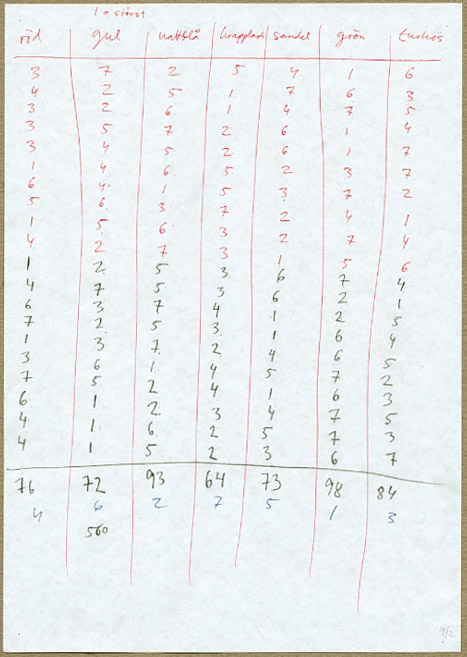 1 = störst
röd gul nattblå krapplack sandel grön turkos
3 7 2 5 4 1 6
4 2 5 1 7 6 3
3 2 6 1 4 7 5
3 5 7 2 6 1 4
3 4 5 2 6 1 7
1 4 6 5 2 3 7
6 4 1 5 3 7 2
5 6 3 7 2 4 1
1 5 6 3 2 7 4
4 2 7 3 1 5 6
1 2 5 3 6 7 4
4 7 5 3 6 2 1
6 3 7 4 1 2 5
7 2 5 3 1 6 4
1 3 7 2 4 6 5
3 6 1 4 5 7 2
7 5 2 4 1 6 3
6 1 2 3 4 7 5
4 1 6 2 5 7 3
4 1 5 2 3 6 7
76 72 93 64 73 98 84
4 6 2 7 5 1 3
560